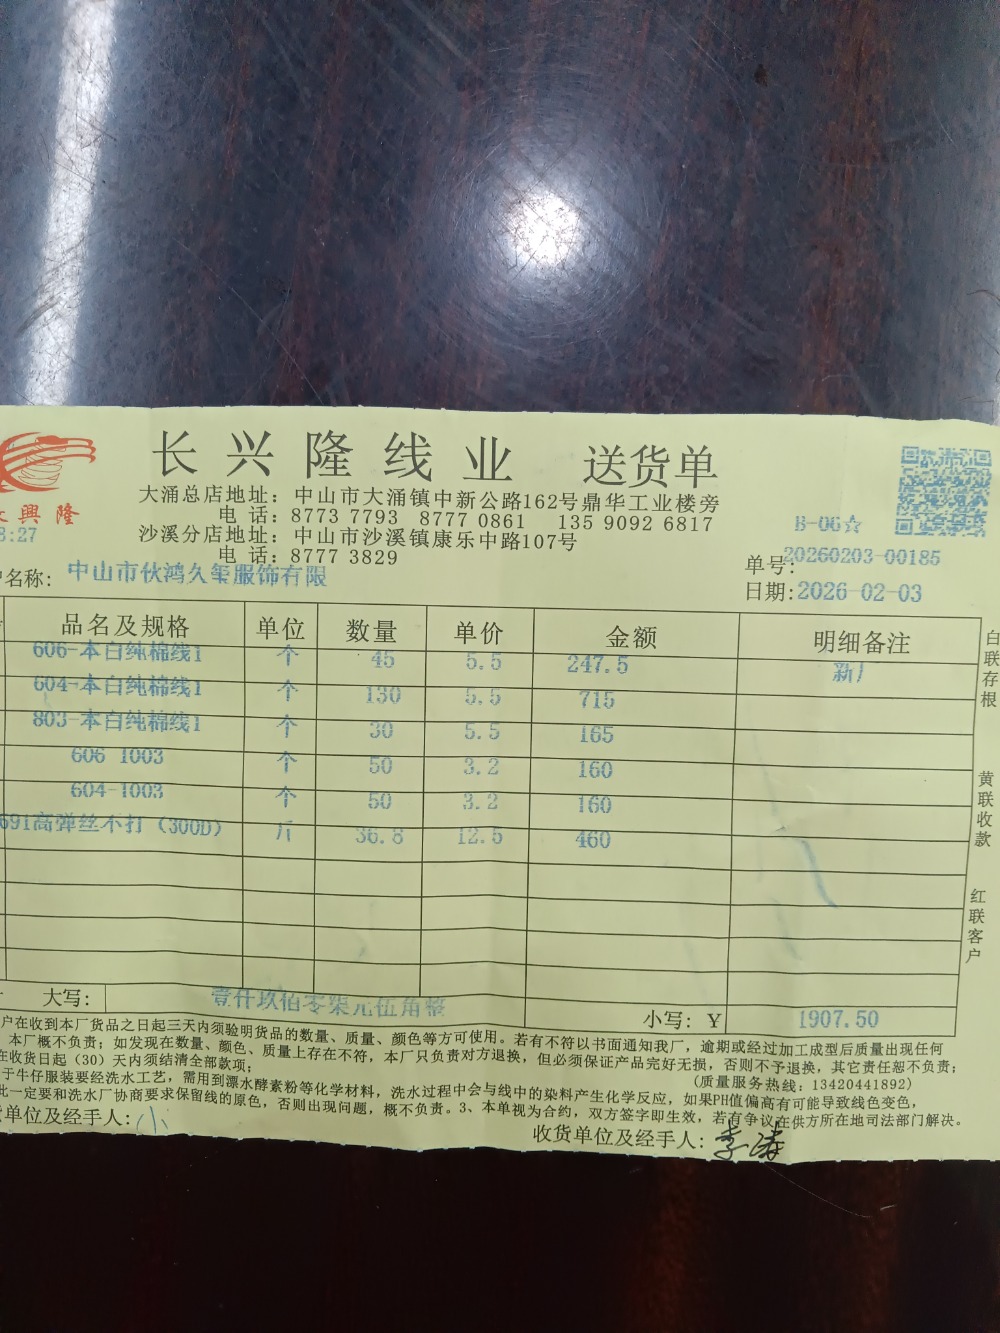 长兴隆线业 送货单
大涌总店地址：中山市大涌镇中新公路162号鼎华工业楼旁
电 话：8773 7793 8777 0861 135 9092 6817
沙溪分店地址：中山市沙溪镇康乐中路107号
电 话：8777 3829
興隆
3:27
B-06☆
单号:20260203-00185
名称: 中山市伙鸿久玺服饰有限
日期:2026-02-03
品名及规格 单位 数量 单价 金额 明细备注
606-本白纯棉线1 个 45 5.5 247.5 新厂
604-本白纯棉线1 个 130 5.5 715
803-本白纯棉线1 个 30 5.5 165
606 1003 个 50 3.2 160
604-1003 个 50 3.2 160
691高弹丝不打（300D） 斤 36.8 12.5 460
白联存根
黄联收款
红联客户
大写: 壹仟玖佰零柒元伍角整 小写: Y 1907.50
户在收到本厂货品之日起三天内须验明货品的数量、质量、颜色等方可使用。若有不符以书面通知我厂，逾期或经过加工成型后质量出现任何
本厂概不负责；如发现在数量、颜色、质量上存在不符，本厂只负责对方退换，但必须保证产品完好无损，否则不予退换，其它责任恕不负责；
在收货日起（30）天内须结清全部款项； （质量服务热线：13420441892）
于牛仔服装要经洗水工艺，需用到漂水酵素粉等化学材料，洗水过程中会与线中的染料产生化学反应，如果PH值偏高有可能导致线色变色，
此一定要和洗水厂协商要求保留线的原色，否则出现问题，概不负责。3、本单视为合约，双方签字即生效，若有争议在供方所在地司法部门解决。
货单位及经手人: 小
收货单位及经手人: 李涛